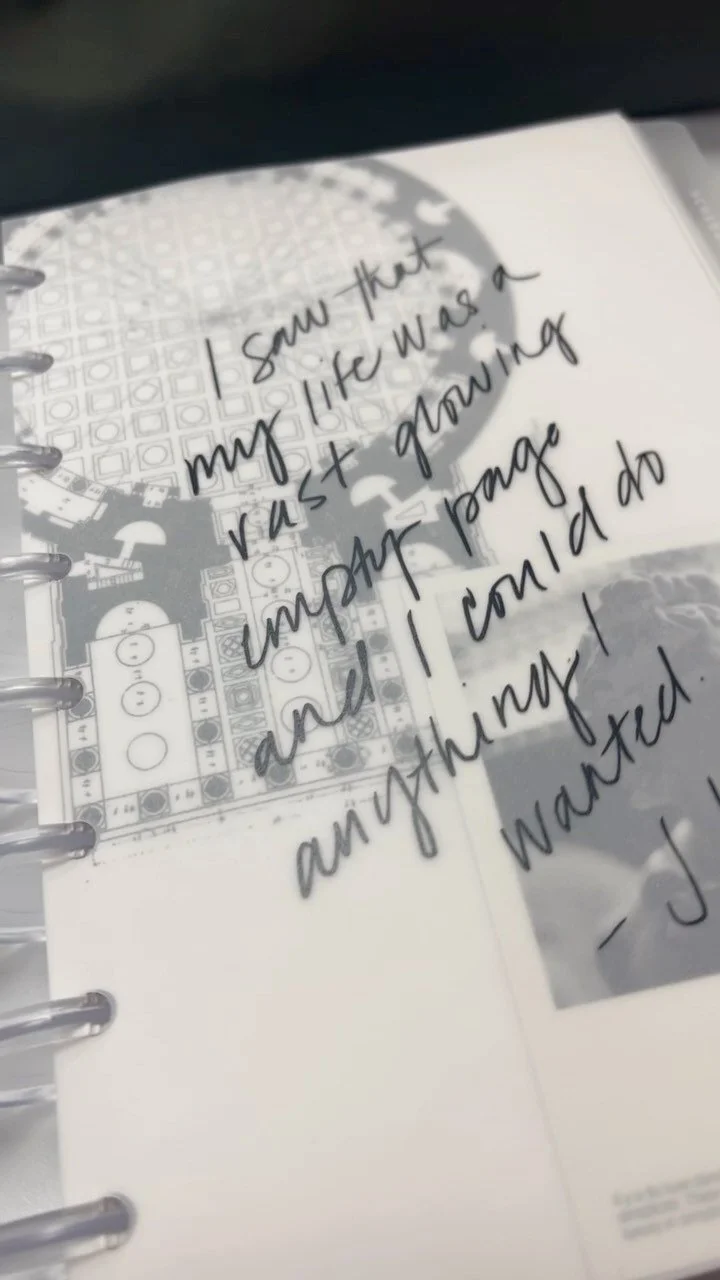 I saw that
my life was a
vast glowing
empty page
and I could do
anything I
wanted.
- J